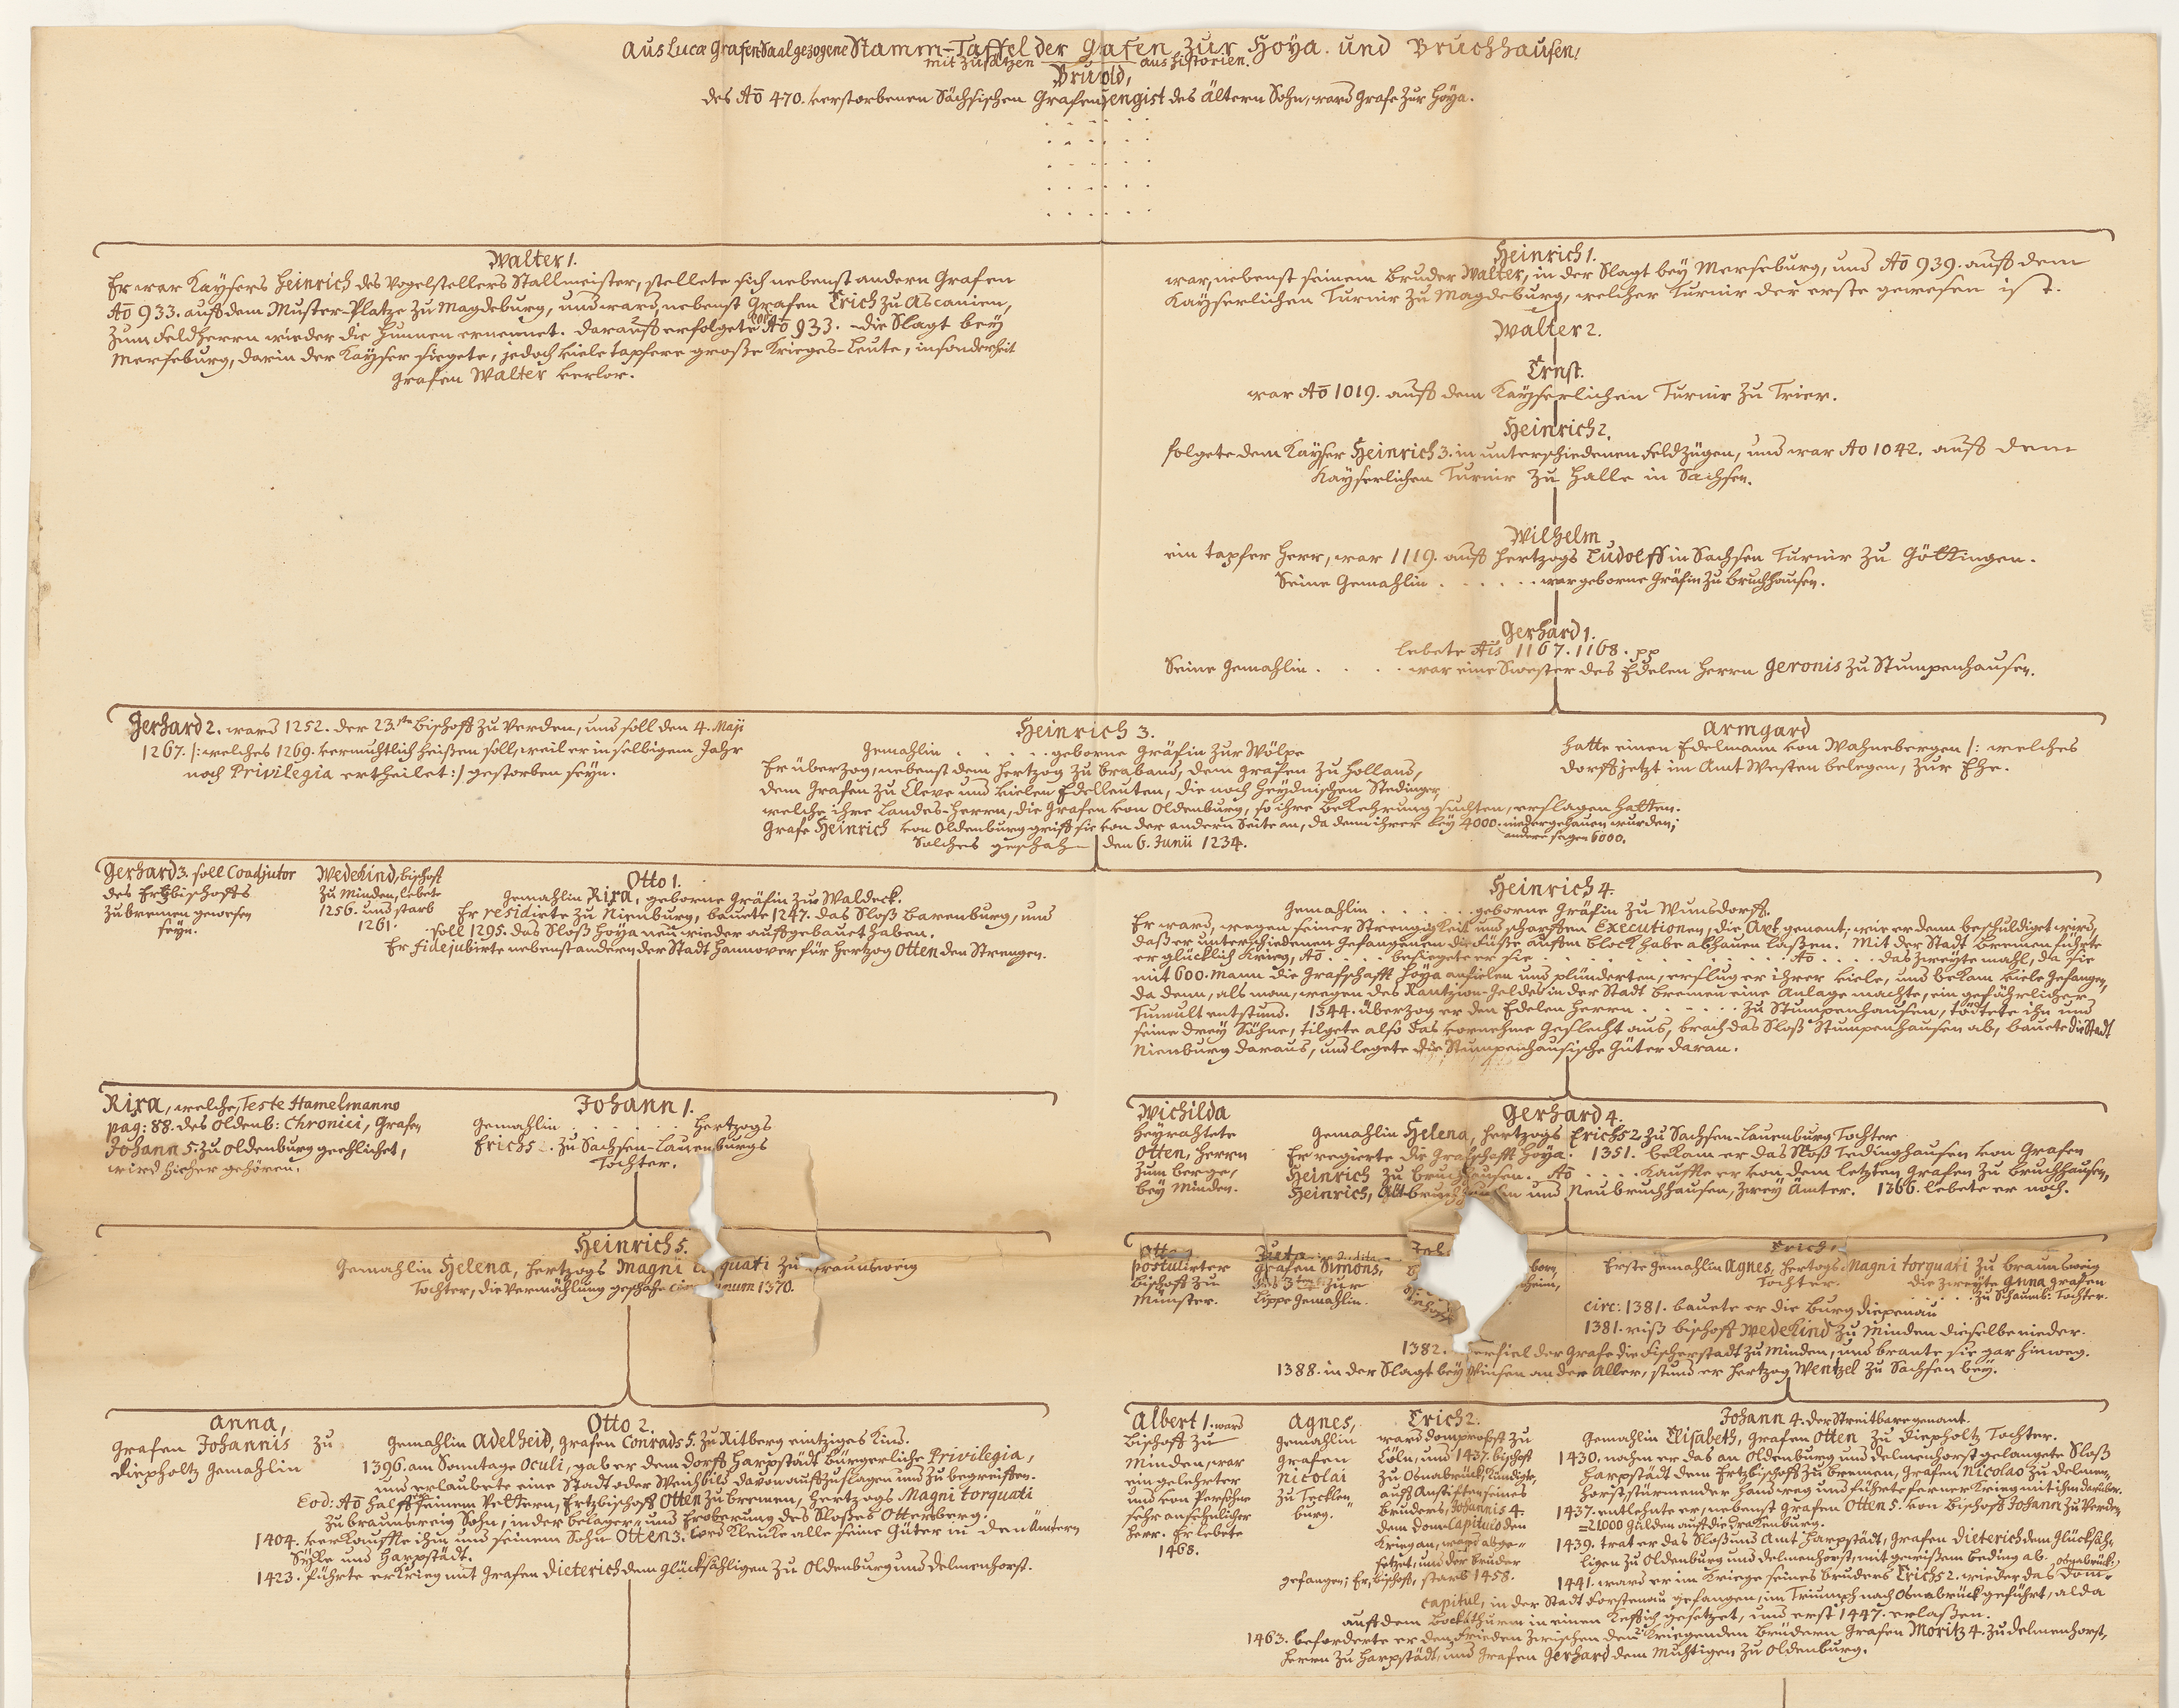 Aus Lucæ Grafen-Saal gezogene Stamm-Taffel der Grafen zur Hoya und Bruchhausen,
mit Zusätzen aus Historien.
Bruold,
des Aō 470. verstorbenen Sächsischen Grafen Hengist des ältern Sohn, ward Grafe zur Hoya.
Walter 1.
Er war Kaysers Heinrich des Vogelstellers Stallmeister, stellete sich nebenst andern Grafen
Aō 933. auff dem Muster-Platze zu Magdeburg, und ward, nebenst Grafen Erich zu Ascanien,
zum Feldherrn wieder die Hunnen ernennet. Darauff erfolgete Aō 933. die Slagt bey
Merseburg, darin der Kayser siegete, jedoch viele tapfere große Krieges-Leute, insonderheit
Grafen Walter verlor.
Heinrich 1.
war, nebenst seinem Bruder Walter, in der Slagt bey Merseburg, und Aō 939. auff dem
Kayserlichen Turnir zu Magdeburg, welcher Turnir der erste gewesen ist.
Walter 2.
Ernst.
war Aō 1019. auff dem Kayserlichen Turnir zu Trier.
Heinrich 2.
folgete dem Kayser Heinrich 3. in unterschiedenen Feldzügen, und war Ao 1042. auff dem
Kayserlichen Turnir zu Halle in Sachsen.
Wilhelm
ein tapfer Herr, war 1119. auff Hertzogs Ludolff in Sachsen Turnir zu Göttingen.
Seine Gemahlin . . . . . . war geborne Gräfin zu Bruchhausen.
Gerhard 1.
lebete Aīs 1167. 1168. pp
Seine Gemahlin . . . . war eine Swester des Edelen Herrn Geronis zu Stumpenhausen.
Gerhard 2. ward 1252. der 23.ste Bischoff zu Verden, und soll den 4. Maji
1267. /: welches 1269. vermuhtlich heißen soll, weil er in selbigem Jahr
noch Privilegia ertheilet :/ gestorben seyn.
Heinrich 3.
Gemahlin . . . . . geborne Gräfin zur Wölpe
Er überzog, nebenst dem Hertzog zu Braband, dem Grafen zu Holland,
dem Grafen zu Cleve und vielen Edelleuten, die noch Heydnischen Stedinger,
welche ihre Landes-Herrn, die Grafen von Oldenburg, so ihre Bekehrung suchten, erslagen hatten.
Grafe Heinrich von Oldenburg griff sie von der andern Seite an, da denn ihrer bey 4000. niedergehauen wurden;
andere sagen 6000.
Solches geschah den 6. Junii 1234.
Armgard
hatte einen Edelmann von Wahnebergen /: welches
Dorff jetzt im Amt Westen belegen, zur Ehe.
Gerhard 3. soll Coadjutor
des Ertzbischoffs
zu Bremen gewesen
seyn.
Wedekind, Bischoff
zu Minden, lebete
1256. und starb
1261.
Otto 1.
Gemahlin Rixa, geborne Gräfin zu Waldeck.
Er residirte zu Nienburg, bauete 1247. das Sloß Barenburg, und
soll 1295. das Sloß Hoya neu wieder auffgebauet haben.
Er fidejubirte nebenst anderen der Stadt Hannover für Hertzog Otten den Strengen.
Heinrich 4.
Gemahlin . . . . . . . geborne Gräfin zu Wunsdorff.
Er ward, wegen seiner Strengigkeit und scharffen Executionen, die Axt genant; wie er denn beschuldiget wird,
daß er unterschiedenen Gefangenen die Füße auffm Block habe abhauen laßen. Mit der Stadt Bremen führte
er glücklich Krieg, Aō . . . . besiegete er sie . . . . . . . . Aō . . . . das zweyte mahl, da sie
mit 600. Mann die Grafschafft Hoya anfielen und plünderten, erslug er ihrer viele, und bekam viele Gefangen,
da denn, als man, wegen des Rantzion-Geldes in der Stadt Bremen eine Anlage machte, ein gefährlicher
Tumult entstund. 1344. überzog er den Edelen Herrn . . . . . . zu Stumpenhausen, tödtete ihn und
seine drey Söhne, tilgete also das vornehme Geslecht aus, brach das Sloß Stumpenhausen ab, bauete die Stadt
Nienburg daraus, und legete die Stumpenhausische Güter daran.
Rixa, welche, Teste Hamelmanno
pag: 88. des Oldenb: Chronici, Grafen
Johann 5. zu Oldenburg geehlichet,
wird hieher gehören.
Johann 1.
Gemahlin . . . . . . . Hertzogs
Erichs . zu Sachsen-Lauenburgs
Tochter.
Wichilda
heyrahtete
Otten, Herrn
zum Berge,
bey Minden.
Gerhard 4.
Gemahlin Helena, Hertzogs Erichs 2. zu Sachsen-Lauenburg Tochter
Er regierte die Grafschafft Hoya. 1351. bekam er das Sloß Tedinghausen von Grafen
Heinrich zu Bruchhausen. Aō . . . . Kauffte er von dem letzten Grafen zu Bruchhausen,
Heinrich, Altbruchhausen und Neubruchhausen, zwey Ämter. 1366. lebete er noch.
Heinrich 5.
Gemahlin Helena, Hertzogs Magni quati zu Braunsweig
Tochter, die Vermählung geschahe num 1370.
Otto
postulirter
Bischoff zu
Münster.
Juta
Grafen Simons,
zur
Lippe Gemahlin.
Joh.
born,
heim,
Erich 1.
Erste Gemahlin Agnes, Hertogs Magni torquati zu Braunsweig
Tochter. Die zweyte Anna Grafen
zu Schaumb: Tochter.
circ: 1381. bauete er die Burg Diepenau
1381. riß Bischoff Wedekind zu Minden dieselbe nieder.
1382. erfiel der Grafe die Fischerstadt zu Minden, und brante sie gar hinweg.
1388. in der Slagt bey Winsen an der Aller, stund er Hertzog Wentzel zu Sachsen bey.
Anna,
Grafen Johannis zu
Diepholtz Gemahlin
Otto 2.
Gemahlin Adelheid, Grafen Conrads 5. zu Ritberg eintziges Kind.
1396. am Sonntage Oculi, gab er dem Dorff Harpstädt Bürgerliche Privilegia,
und erlaubete eine Stadt oder Weichbild davon auffzuslagen und zu begreiffen.
Eod: Aō halff seinem Vettern, Ertzbischoff Otten zu Bremen, Hertzogs Magni torquati
zu Braunsweig Sohn, in der Belager- und Eroberung des Sloßes Ottersberg.
1404. verkauffte ihm und seinem Sohn Otten 3. Cord Klenke alle seine Güter in den Ämtern
Syke und Harpstädt.
1423. führte er Krieg mit Grafen Dieterich dem Glückshligen zu Oldenburg und Delmenhorst.
Albert 1. ward
Bischoff zu
Minden, war
ein gelehrter
und von Persohn
sehr ansehnlicher
Herr. Er lebete
1468.
Agnes,
Gemahlin
Grafen
Nicolai
zu Tecklen-
burg.
Erich 2.
ward Domprobst zu
Cöln, und 1437. Bischoff
zu Osnabrück, kündigte,
auff Anstifften seines
Bruders, Johannis 4.
dem Dom-Capitulo den
Krieg an, ward abge-
setzet, und der Bruder
gefangen; Er, Bischoff, starb 1458.
Johann 4. der Streitbare genant.
Gemahlin Elisabeth, Grafen Otten zu Diepholtz Tochter.
1430. nahm er das an Oldenburg und Delmenhorst gelangete Sloß
Harpstädt dem Ertzbischoff zu Bremen, Grafen Nicolao zu Delmen-
horst, stürmender Hand weg und führete ferner Krieg mit ihm darüber.
1437. entlehnte er, nebenst Grafen Otten 5. von Bischoff Johann zu Verden
21000 Gülden auff die Drakenburg.
1439. trat er das Sloß und Amt Harpstädt, Grafen Dieterich dem Glücksäh-
ligen zu Oldenburg und Delmenhorst, mit gewißem Beding ab.
1441. ward er im Kriege seines Bruders Erichs 2. wieder das Osnabrück: Dom-
capitul, in der Stadt Forstenau gefangen, im Triumph nach Osnabrück geführt, alda
auff dem Bocksthurm in einen Keffich gesetzet, und erst 1447. erlaßen.
1463. beforderte er den Frieden zwischen den Kriegenden Brüdern Grafen Moritz 4. zu Delmenhorst,
Herrn zu Harpstädt, und Grafen Gerhard dem Muhtigen zu Oldenburg.